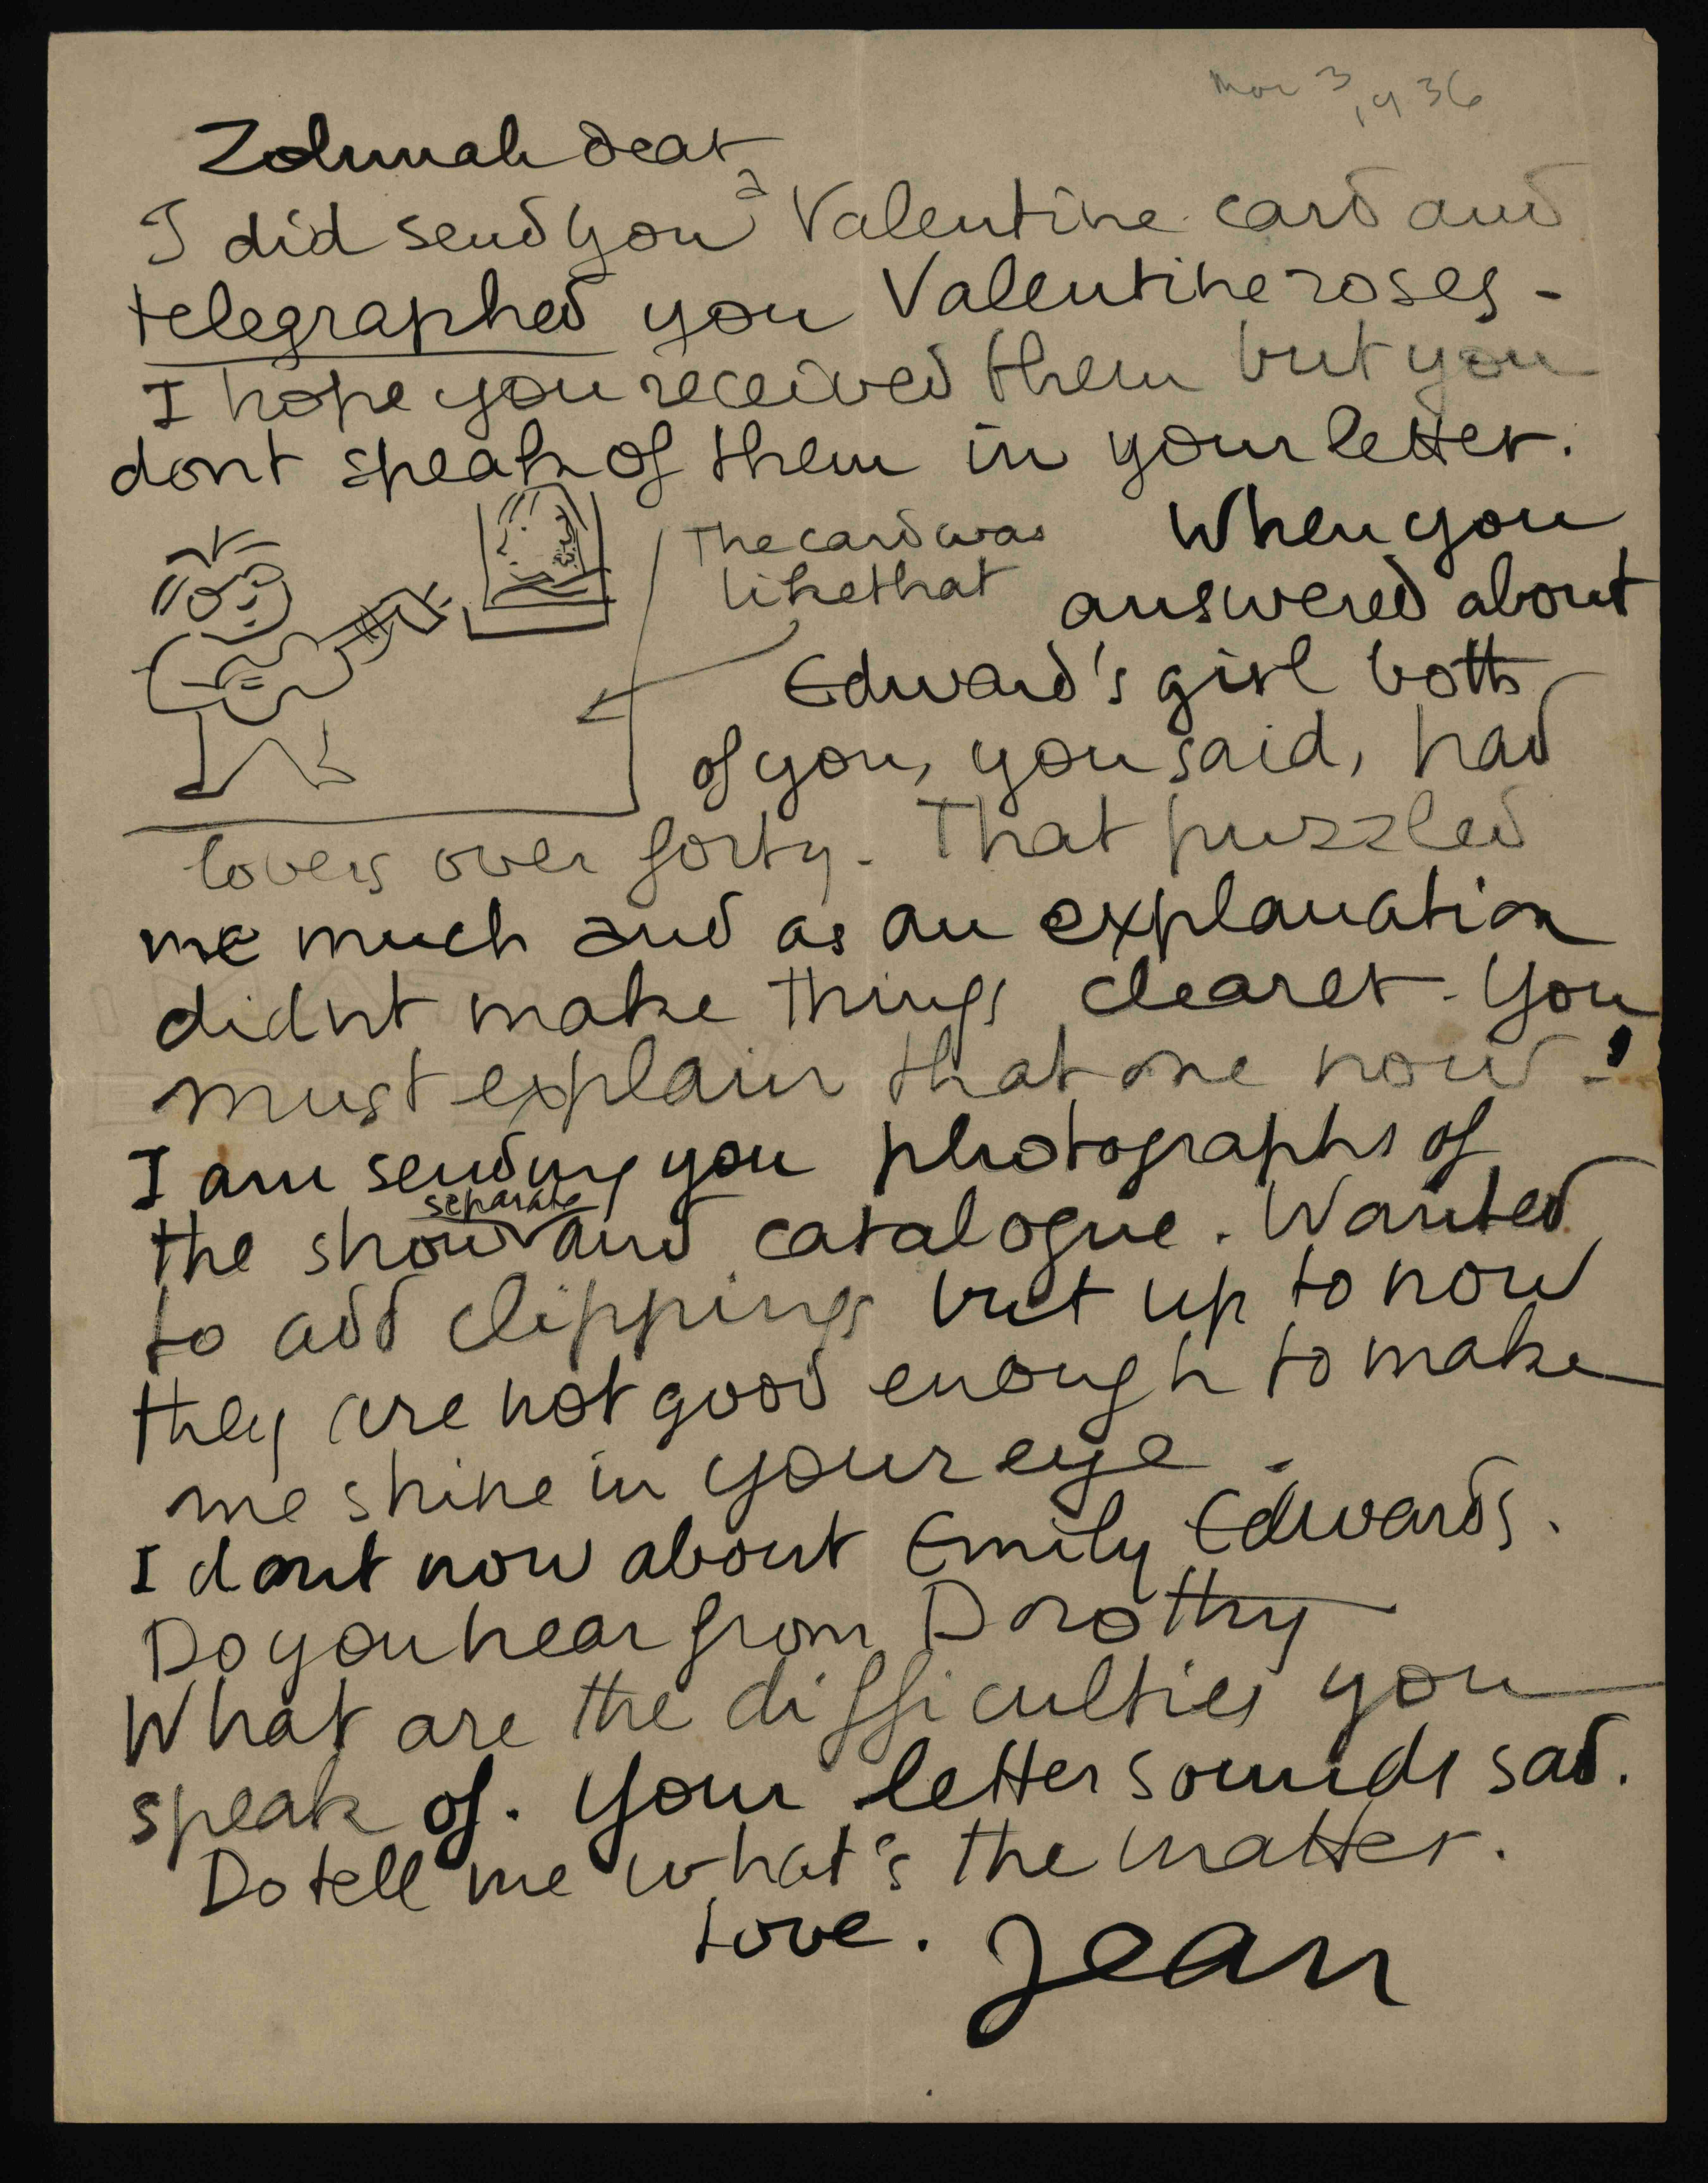 Mar 3, 1936
Zohmah dear
I did send you a Valentine card and
telegraphed you Valentine roses -
I hope you received them but you
dont speak of them in your letter.
The card was
like that
When you
answered about
Edward's girl both
of you, you said, had
lovers over forty. That puzzled
me much and as an explanation
didnt make things clearer. You
must explain that one now!
I am sending you photographs of
the show separate and catalogue. Wanted
to add clippings but up to now
they are not good enough to make
me shine in your eye.
I dont now about Emily Edwards.
Do you hear from Dorothy
What are the difficulties you
speak of. Your letter sounds sad.
Do tell me what's the matter.
Love. Jean